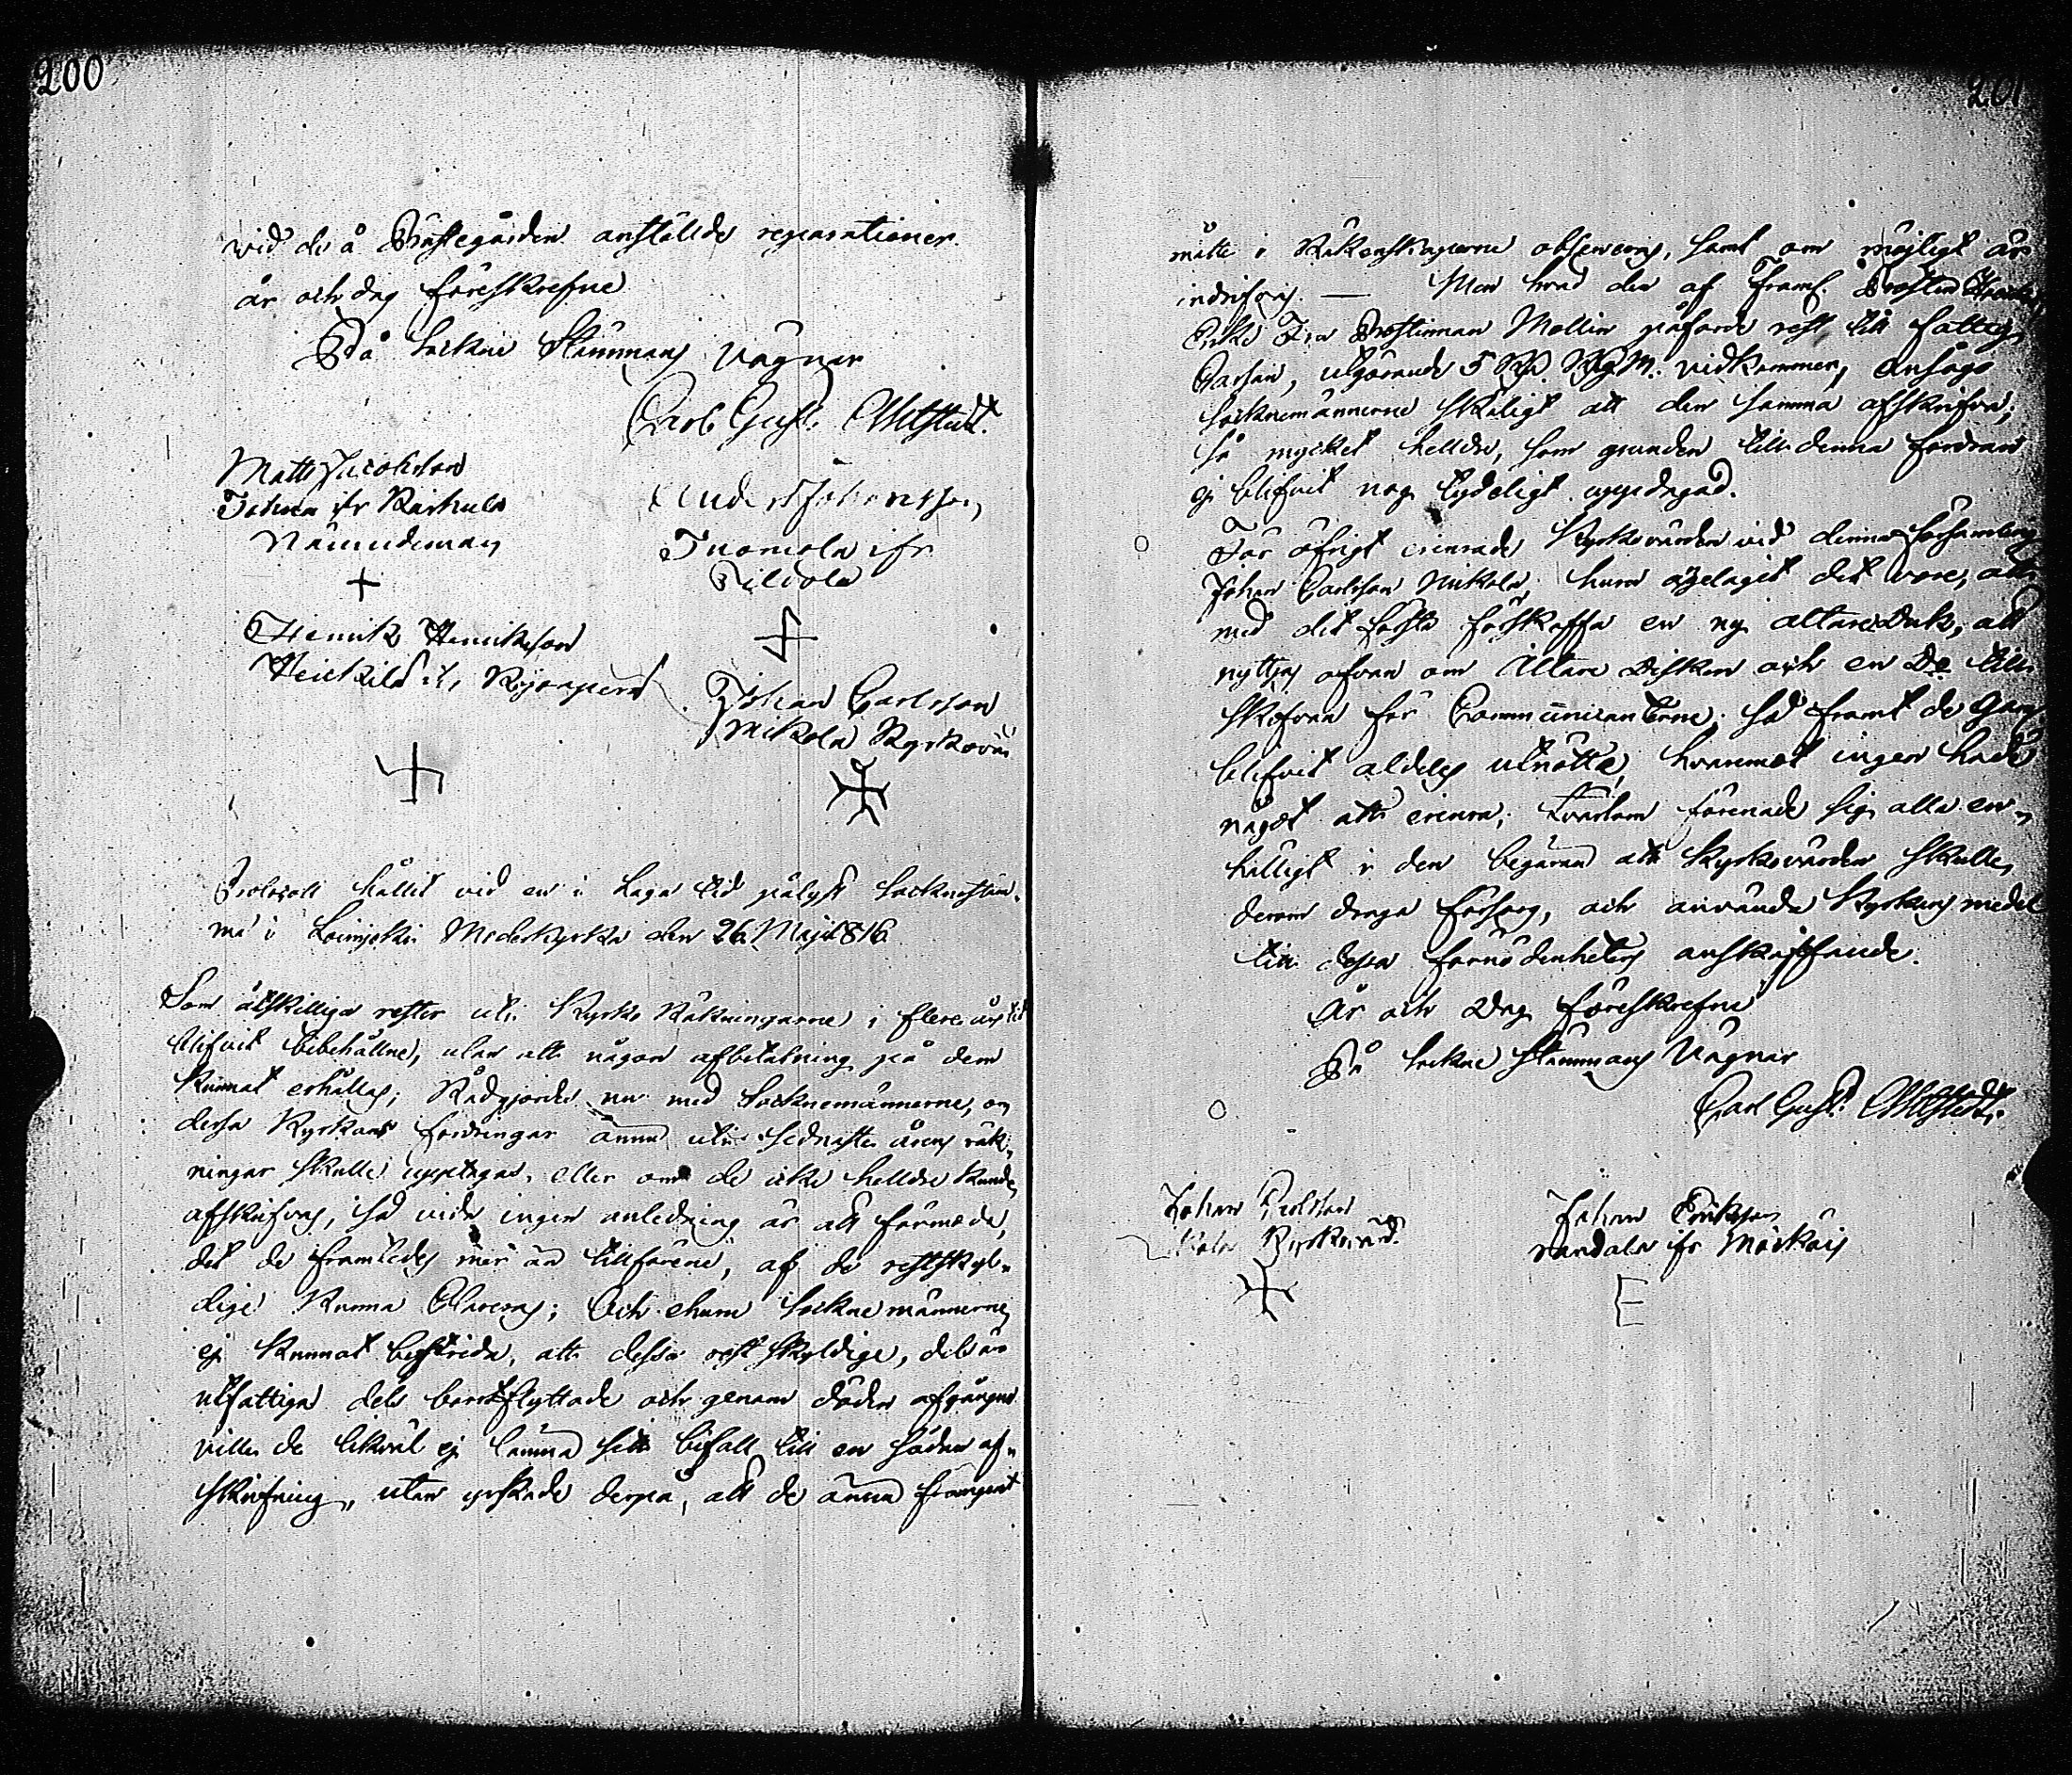 200
wid de å Prästegården anstälde reparationer.
år och dag föreskrefne
På Sockne Stämmans vägnar
Carl Gust.
Matts Jacobsson
Nämndeman
Anders Johansson
Tuomola ifr
Henrik Henriksson
Heickilä
Johan Carlsson
Mikola Kyrkovä
Protocoll hållit vid en i Laga tid pålyst Socknestäm¬
ma i Loimjoki Moderkyrka den 26 Maji 1816
Som åtskilliga rester uti Kyrko Räkningarne i flere års tid
blifvit bibehållne, utan att någon afbetalning på dem
kunnat erhållas; Rådgjordes nu med Socknemännerne, om
dessa Kyrkans fordringar ännu uti sednaste årens räk¬
ningar skulle upptagas, eller om de icke helldre kunde
afskrifvas, så vida ingen anledning är att förmoda,
det de framledes mer än tillförene, af de restskyl¬
dige kunna; Och ehuru Sockne männerne
ej kunnat bestrida, att dessa restskyldige, dels är
utfattiga dels bortflyttade och genom döden afgångne
ville de likväl ej lämna sitt bifall till en sådan af¬
skrifning, utan yrkade derpå, att de ännu framgent
201
måtte i Räkenskaperne observeras, samt om möjligt är
indrifvas. — Men hvad den af Framl. Prosten
Enka Fru Prostinnan Mollin påförde rest till Fattig
Cassan, utgörande 5 vidkommer, ansågo
Socknemännerne skäligt att den samma afskrifva;
så mycket helldre, som grunden till denna fordran
ej blifvit nog tydeligt uppdagad.
För öfrigt erinrade Kyrkovärden vid denna Församling
Johan Carlsson Mikola, huru det vore, att
med det första förskaffa en ny altare Duk, att
nyttjas ofvan om Altare Disken och en Do till
skofvan för Communicanterne, så framt de Gamla
blifvit aldeles utnötta, hvaremot ingen hade
något att erinra, förenade sig alla en¬
hälligt i den begäran att Kyrkovärden skulle
derom draga försorg, och använda Kyrkans medel
till dessa förnödenheters anskaffande.
År och Dag föreskrefne
På Sockne Stämmans Vägnar
Carl Gust.
Johan Carlsson
Mikola Kyrkovärd.
Johan Eriksson